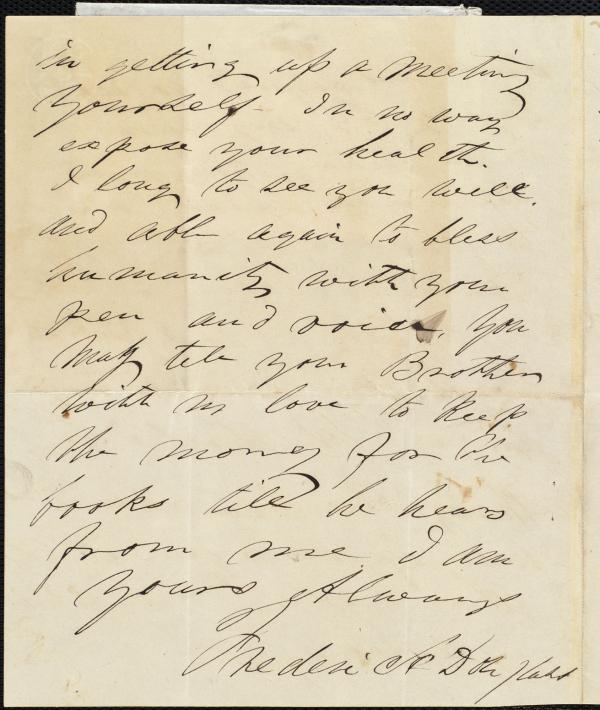 in getting up a meeting
yourself - In no way
expose your health.
I long to see you well.
and able again to bless
humanity with your
pen and voice, you
may tell your Brother
with my love to keep
the money for the
books till he hears
from me I am
yours always
Frederick Douglass